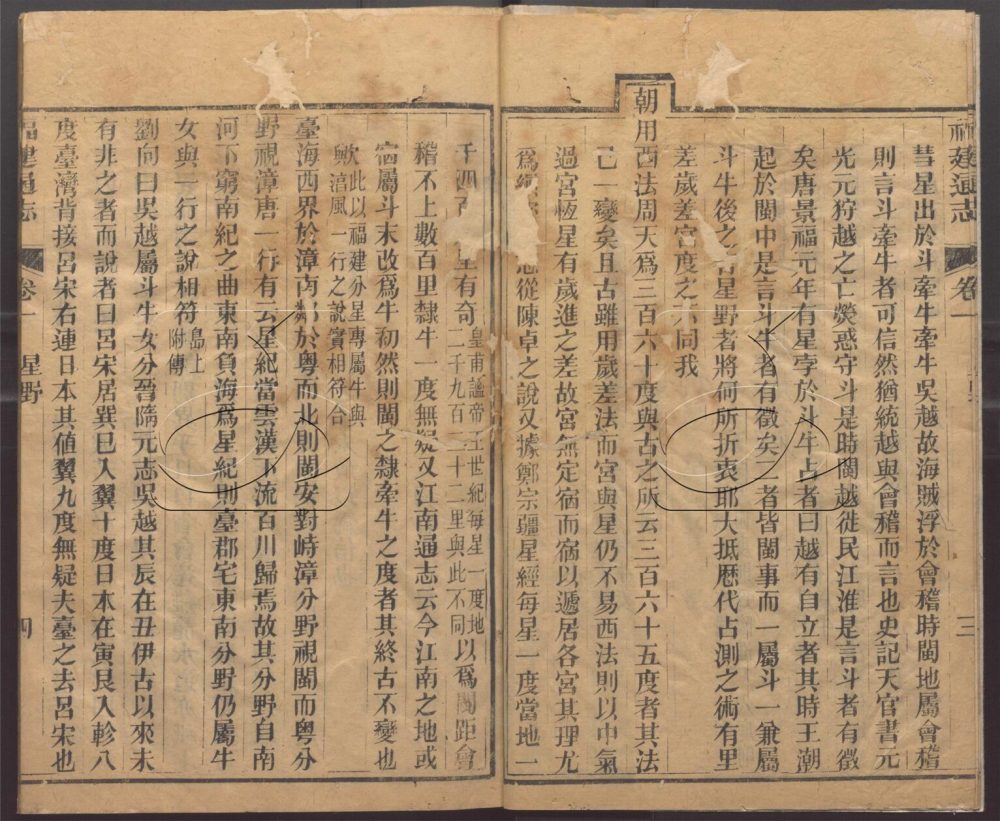 福建通志 卷一 三
彗星出於斗牽牛牽牛吳越故海賊浮於會稽時閩地屬會稽
則言斗牽牛者可信然猶統越與會稽而言也史記天官書元
光元狩越之亡熒惑守斗是時閩越徙民江淮是言斗者有徵
矣唐景福元年有星孛於斗牛占者曰越有自立者其時王潮
起於閩中是言斗牛者有徵矣二者皆閩事而一屬斗一兼屬
斗牛後之言星野者將何所折衷耶大抵歷代占測之術有里
差歲差宮度之不同我
朝用西法周天爲三百六十度與古之所云三百六十五度者其法
已一變矣且古雖用歲差法而宮與星仍不易西法則以中氣
過宮恆星有歲進之差故宮無定宿而宿以遞居各宮其理尤
爲從陳卓之說又據鄭宗疆星經每星一度當地一
千四百里有奇皇甫謐帝王世紀每星一度地二千九百三十二里與此不同以爲閩距會
稽不上數百里隸牛一度無疑又江南通志云今江南之地或
宿屬斗末改爲牛初然則閩之隸牽牛之度者其終古不變也
歟此以福建分星專屬牛與涫風一行之說實相符合
臺海西界於漳丙鄰於粵而北則閩安對峙漳分野視閩而粵分
野視漳唐一行有云星紀當雲漢下流百川歸焉故其分野自南
河下窮南紀之曲東南負海爲星紀則臺郡宅東南分野仍屬牛
女與一行之說相符島上附傳
劉向曰吳越屬斗牛女分晉隋元志吳越其辰在丑伊古以來未
有非之者而說者曰呂宋居巽巳入翼十度日本在寅艮入軫八
度臺濟背接呂宋右連日本其値翼九度無疑夫臺之去呂宋也
福建通志 卷一 星野 四